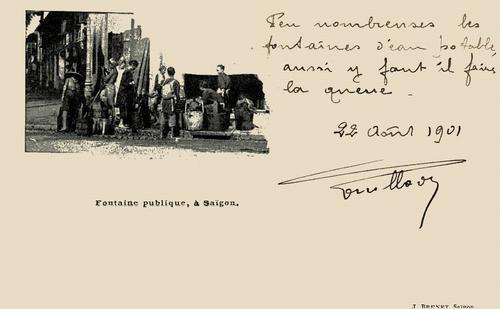 Peu nombreuses les
fontaines d'eau potable,
aussi y faut il faire
la queue.
22 Août 1901
Fontaine publique, à Saïgon.
J. BRUNET, Saïgon